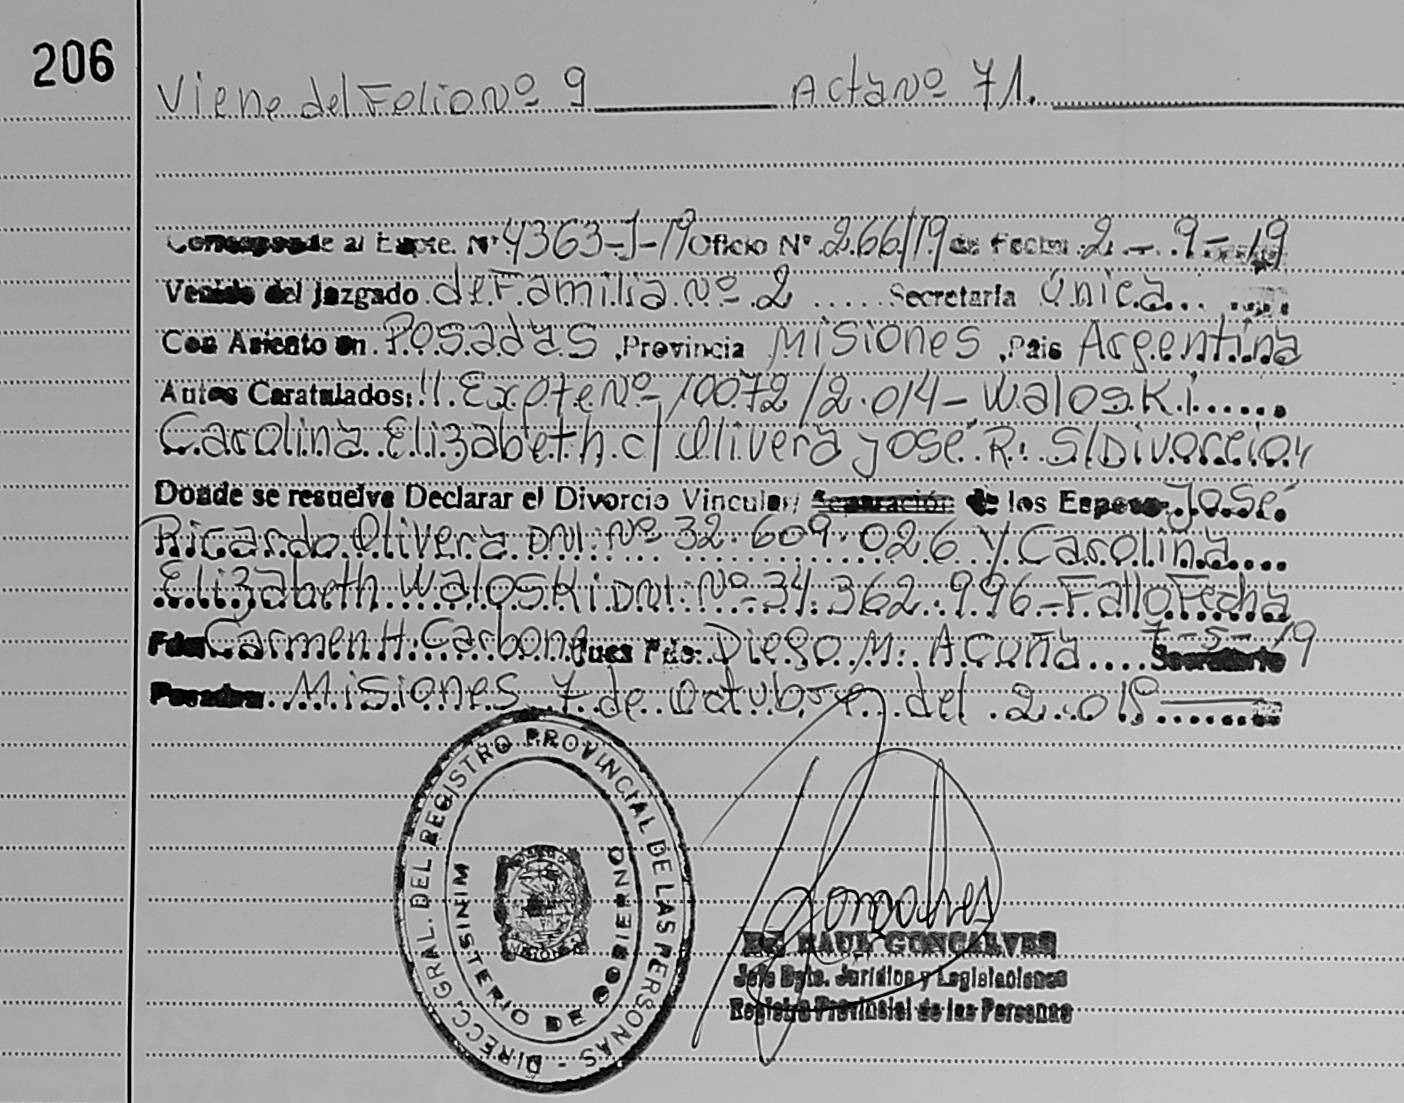 206
Viene del Folio Nº 9 Acta Nº 71.
Corresponde al Expte. Nº 4363-J-19 Oficio Nº 266/19 de Fecha 2-9-19
Venido del Juzgado de Familia Nº 2 Secretaría Única
Con Asiento en Posadas, Provincia Misiones, País Argentina
Autos Caratulados: "Expte Nº 10072/2.014- Waloski
Carolina Elizabeth c/ Olivera José R. S/Divorcio"
Donde se resuelve Declarar el Divorcio Vincular/ Separación de los Esposos José
Ricardo Olivera DNI: Nº 32.609.026 y Carolina
Elizabeth Waloski DNI: Nº 34.362.996- Fallo Fecha
Fdo Carmen H. Carbone Juez Fdo: Diego M. Acuña 7-5-19 Secretario
Posadas Misiones 7 de Octubre del
DIRECC. GRAL. DEL REGISTRO PROVINCIAL DE LAS PERSONAS -
MINISTERIO DE GOBIERNO
MISIONES
Goncalves
RAUL GONCALVES
Jefe Dpto. Jurídico y Legislaciones
Registro Provincial de las Personas